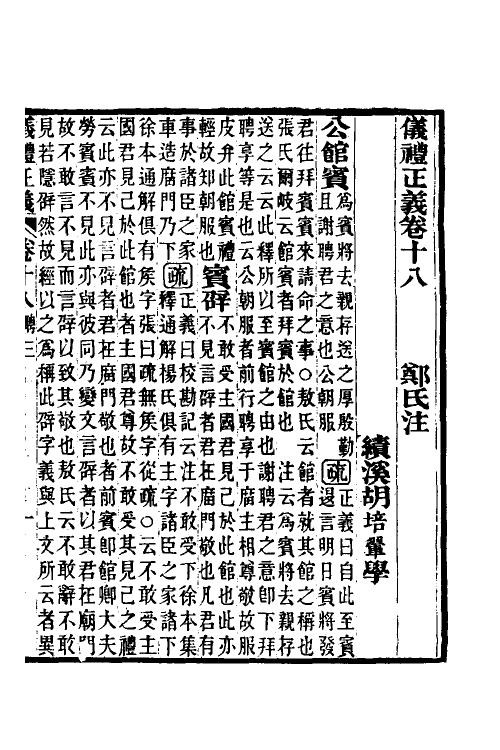 儀禮正義卷十八　鄭氏注
績溪胡培翬學
公館賓爲賓將去親存送之厚殷勤且謝聘君之意也公朝服疏正義曰自此至賓退言明日賓將發
君往拜賓賓來請命之事○敖氏云館者就其館之稱也
張氏爾岐云館賓者拜賓於館也　注云爲賓將去親存
送之云云此釋所以至賓館之由也謝聘君之意卽下拜
聘享等是也云公朝服者前行聘享于廟主相尊敬故服
皮弁此館賓禮輕故知朝服也賓辟不敢受主國君見己於此館也此亦不見言辟者君在廟門敬也凡君有
事於諸臣之家車造廟門乃下疏正義曰校勘記云注不敢受下徐本集釋通解楊氏俱有主字諸臣之家諸下
徐本通解俱有矦字張曰疏無矦字從疏○云不敢受主
國君見己於此館也者主國君尊故不敢受其見己之禮
云此亦不見言辟者君在廟門敬也者前賓卽館卿大夫
勞賓賓不見此亦與彼同乃變文言辟者以其君在廟門
故不敢言不見而言辟以致其敬也敖氏云不敢辭不敢
見若隱辟然故經以之爲稱此辟字義與上文所云者異
儀禮正義　卷十八　聘三　一